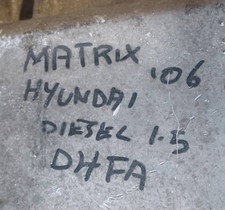 MATRIX '06
HYUNDAI
DIESEL 1.5
DHFA